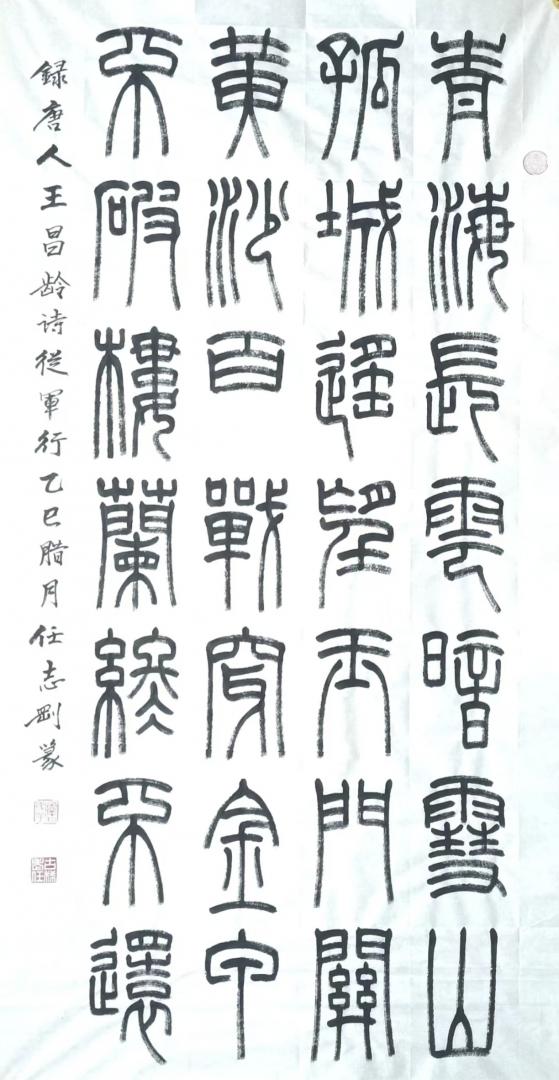 青海長雲暗雪山
孤城遥望玉門關
黄沙百戰穿金甲
不破樓蘭終不還
録唐人王昌龄诗從軍行乙巳腊月任志剛篆